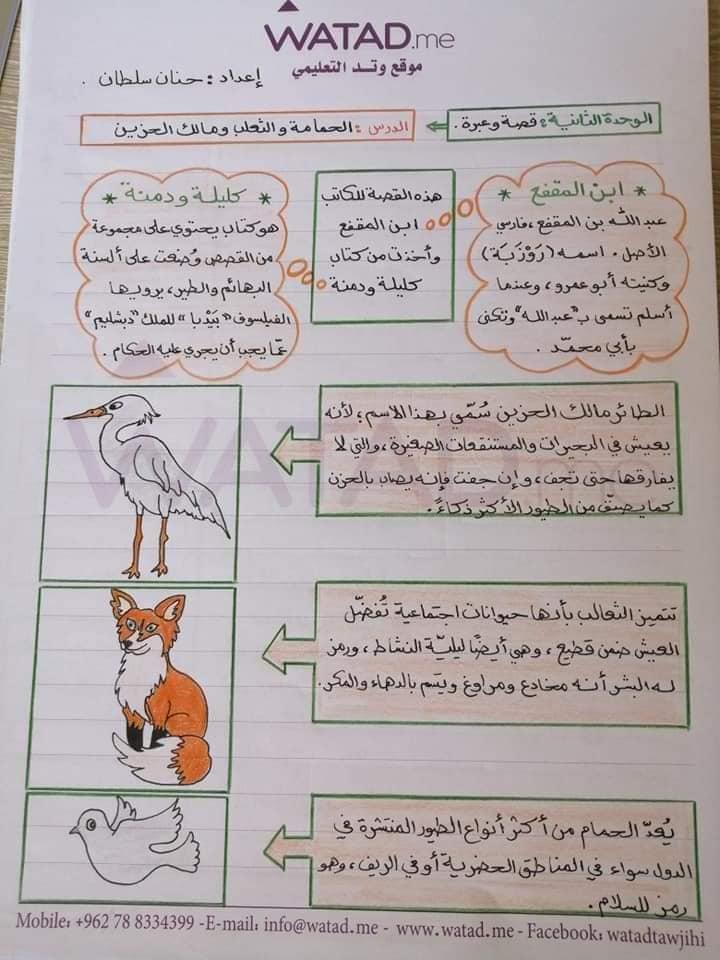 WATAD.me
موقع وتد التعليمي
إعداد : حنان سلطان .
الوحدة الثانية : قصة وعبرة .
الدرس : الحمامة والثعلب ومالك الحزين
* ابن المقفع *
عبد الله بن المقفع ، فارسي
الأصل . اسمه (رَوْزَبَة)
وكنيته أبو عمرو ، وعندما
أسلم تسمى بـ "عبد الله" وتكنى
بأبي محمّد .
هذه القصة للكاتب
ابن المقفع
وأخذت من كتاب
كليلة ودمنة
* كليلة ودمنة *
هو كتاب يحتوي على مجموعة
من القصص وُضعت على ألسنة
البهائم والطير ، يرويها
الفيلسوف "بَيْدبا" للملك "دبشليم"
عمّا يجب أن يجري عليه الحكام .
الطائر مالك الحزين سُمّي بهذا الاسم ؛ لأنه
يعيش في البحيرات والمستنقعات الصغيرة ، والتي لا
يفارقها حتى تجف ، وإن جفت فإنه يصاب بالحزن
كما يصنّف من الطيور الأكثر ذكاءً .
تتميز الثعالب بأنها حيوانات اجتماعية تُفضّل
العيش ضمن قطيع ، وهي أيضًا ليليّة النشاط ، ورمز
له البشر أنه مخادع ومراوغ ويتسم بالدهاء والمكر .
يُعدّ الحمام من أكثر أنواع الطيور المنتشرة في
الدول سواء في المناطق الحضرية أو في الريف ، وهو
رمز للسلام .
Mobile: +962 78 8334399 -E-mail: info@watad.me - www.watad.me - Facebook: watadtawjihi